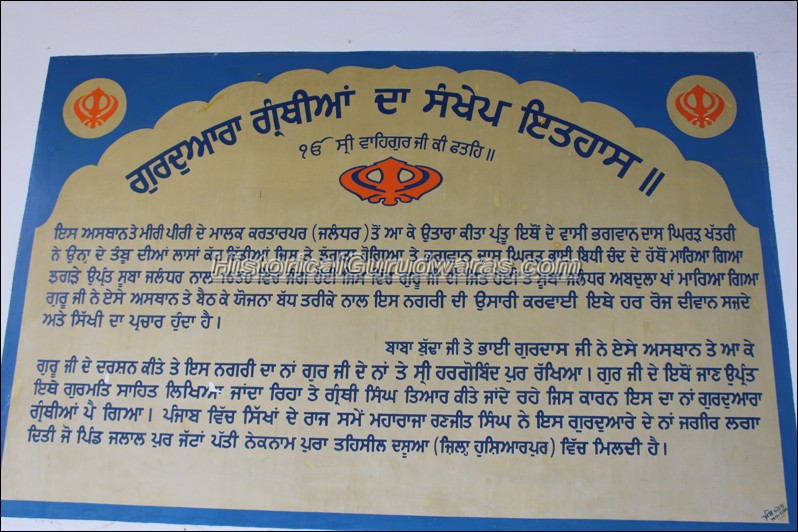 ਗੁਰਦੁਆਰਾ ਗ੍ਰੰਥੀਆਂ ਦਾ ਸੰਖੇਪ ਇਤਹਾਸ ॥
੧ੳ ਸ੍ਰੀ ਵਾਹਿਗੁਰ ਜੀ ਕੀ ਫਤਹਿ ॥
ਇਸ ਅਸਥਾਨ ਤੇ ਮੀਰੀ ਪੀਰੀ ਦੇ ਮਾਲਕ ਕਰਤਾਰਪਰ (ਜਲੰਧਰ) ਤੋਂ ਆ ਕੇ ਉਤਾਰਾ ਕੀਤਾ ਪ੍ਰੰਤੂ ਇਥੋਂ ਦੇ ਵਾਸੀ ਭਗਵਾਨ ਦਾਸ ਘਿਰੜ ਖੱਤਰੀ
ਨੇ ਉਨ੍ਹਾਂ ਦੇ ਤੰਬੂ ਦੀਆਂ ਲਾਸਾਂ ਕੱਟ ਦਿੱਤੀਆਂ ਜਿਸ ਤੇ ਝੱਗੜਾ ਹੋਗਿਆ ਤੇ ਭਗਵਾਨ ਦਾਸ ਘਿਰੜ ਭਾਈ ਬਿਧੀ ਚੰਦ ਦੇ ਹੱਥੋਂ ਮਾਰਿਆ ਗਿਆ
ਝਗੜੇ ਉਪ੍ਰੰਤ ਸੂਬਾ ਜਲੰਧਰ ਨਾਲ ਜਿਸ ਵਿਚ ਗੁਰੂ ਜੀ ਦੀ ਜਿੱਤ ਹੋਈ ਤੇ ਸੂਬਾ ਜਲੰਧਰ ਅਬਦੁਲਾ ਖਾਂ ਮਾਰਿਆ ਗਿਆ
ਗੁਰੂ ਜੀ ਨੇ ਏਸੇ ਅਸਥਾਨ ਤੇ ਬੈਠ ਕੇ ਯੋਜਨਾ ਬੱਧ ਤਰੀਕੇ ਨਾਲ ਇਸ ਨਗਰੀ ਦੀ ਉਸਾਰੀ ਕਰਵਾਈ ਇਥੇ ਹਰ ਰੋਜ ਦੀਵਾਨ ਸਜ਼ਦੇ
ਅਤੇ ਸਿੱਖੀ ਦਾ ਪ੍ਰਚਾਰ ਹੁੰਦਾ ਹੈ।
ਬਾਬਾ ਬੁੱਢਾ ਜੀ ਤੇ ਭਾਈ ਗੁਰਦਾਸ ਜੀ ਨੇ ਏਸੇ ਅਸਥਾਨ ਤੇ ਆ ਕੇ
ਗੁਰੂ ਜੀ ਦੇ ਦਰਸ਼ਨ ਕੀਤੇ ਤੇ ਇਸ ਨਗਰੀ ਦਾ ਨਾਂ ਗੁਰ ਜੀ ਦੇ ਨਾਂ ਤੇ ਸ੍ਰੀ ਹਰਗੋਬਿੰਦ ਪੁਰ ਰੱਖਿਆ। ਗੁਰ ਜੀ ਦੇ ਇਥੋਂ ਜਾਣ ਉਪ੍ਰੰਤ
ਇਥੇ ਗੁਰਮਤਿ ਸਾਹਿਤ ਲਿਖਿਆ ਜਾਂਦਾ ਰਿਹਾ ਤੇ ਗ੍ਰੰਥੀ ਸਿੰਘ ਤਿਆਰ ਕੀਤੇ ਜਾਂਦੇ ਰਹੇ ਜਿਸ ਕਾਰਨ ਇਸ ਦਾ ਨਾਂ ਗੁਰਦੁਆਰਾ
ਗ੍ਰੰਥੀਆਂ ਪੈ ਗਿਆ। ਪੰਜਾਬ ਵਿੱਚ ਸਿੱਖਾਂ ਦੇ ਰਾਜ ਸਮੇਂ ਮਹਾਰਾਜਾ ਰਣਜੀਤ ਸਿੰਘ ਨੇ ਇਸ ਗੁਰਦੁਆਰੇ ਦੇ ਨਾਂ ਜਗੀਰ ਲਗਾ
ਦਿਤੀ ਜੋ ਪਿੰਡ ਜਲਾਲ ਪੁਰ ਜੱਟਾਂ ਪੱਤੀ ਨੇਕਨਾਮ ਪੁਰਾ ਤਹਿਸੀਲ ਦਸੂਆ (ਜ਼ਿਲ੍ਹਾ ਹੁਸ਼ਿਆਰਪੁਰ) ਵਿੱਚ ਮਿਲਦੀ ਹੈ।
HistoricalGurudwaras.com